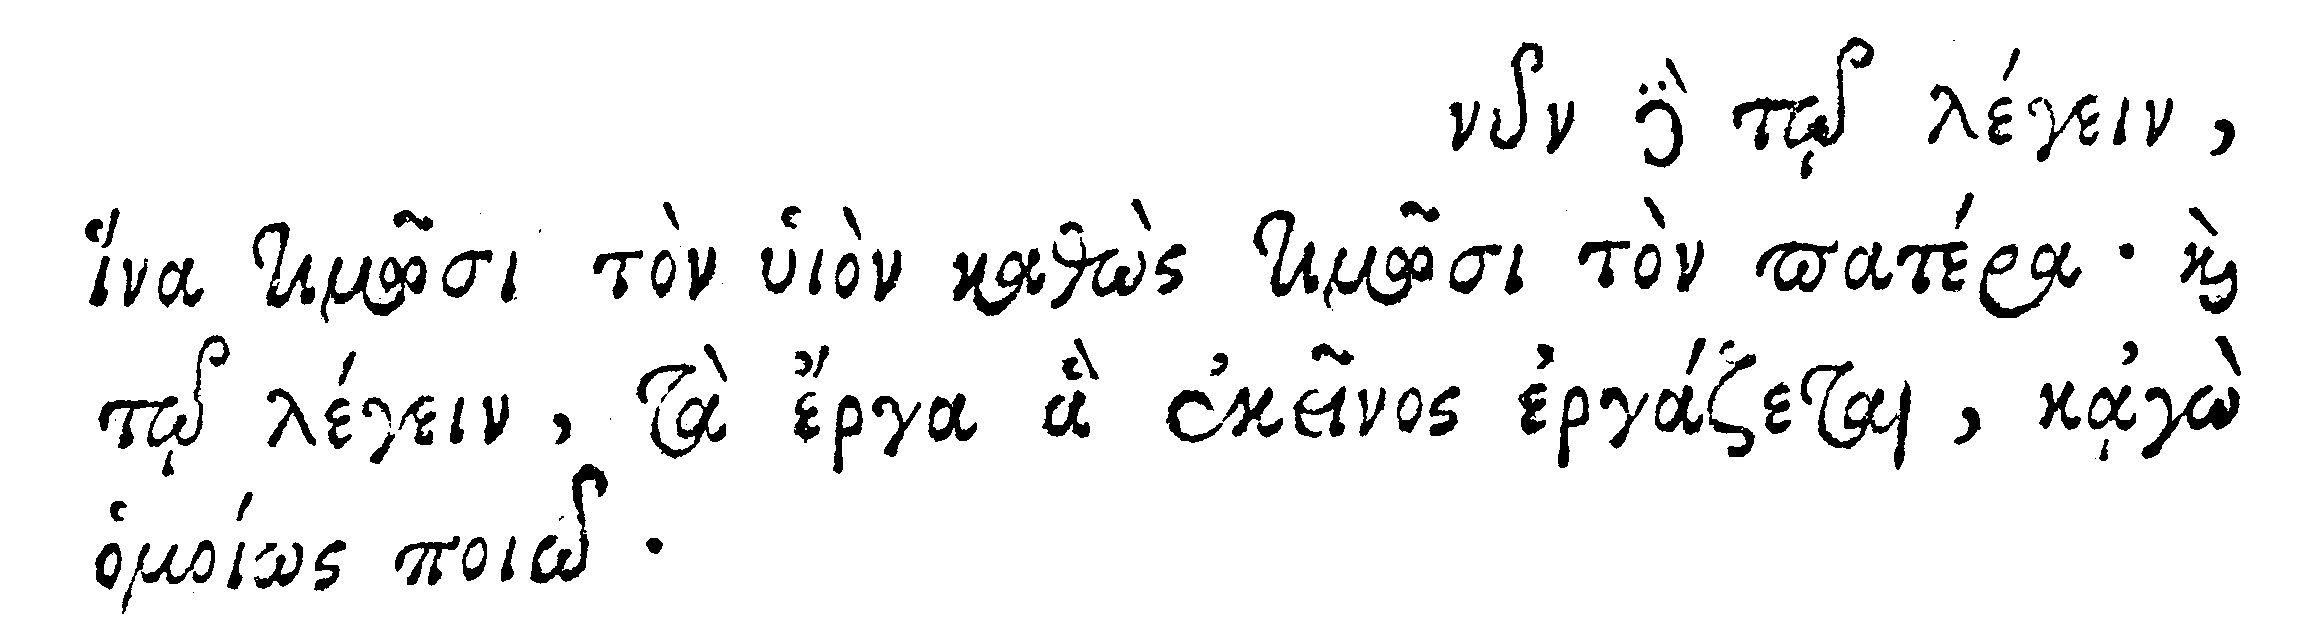 νῦν δὲ τῷ λέγειν,
ἵνα τιμῶσι τὸν ὑιὸν καθὼς τιμῶσι τὸν πατέρα · καὶ
τῷ λέγειν, τὰ ἔργα ἃ ἐκεῖνος ἐργάζεται, κᾀγὼ
ὁμοίως ποιῶ ·